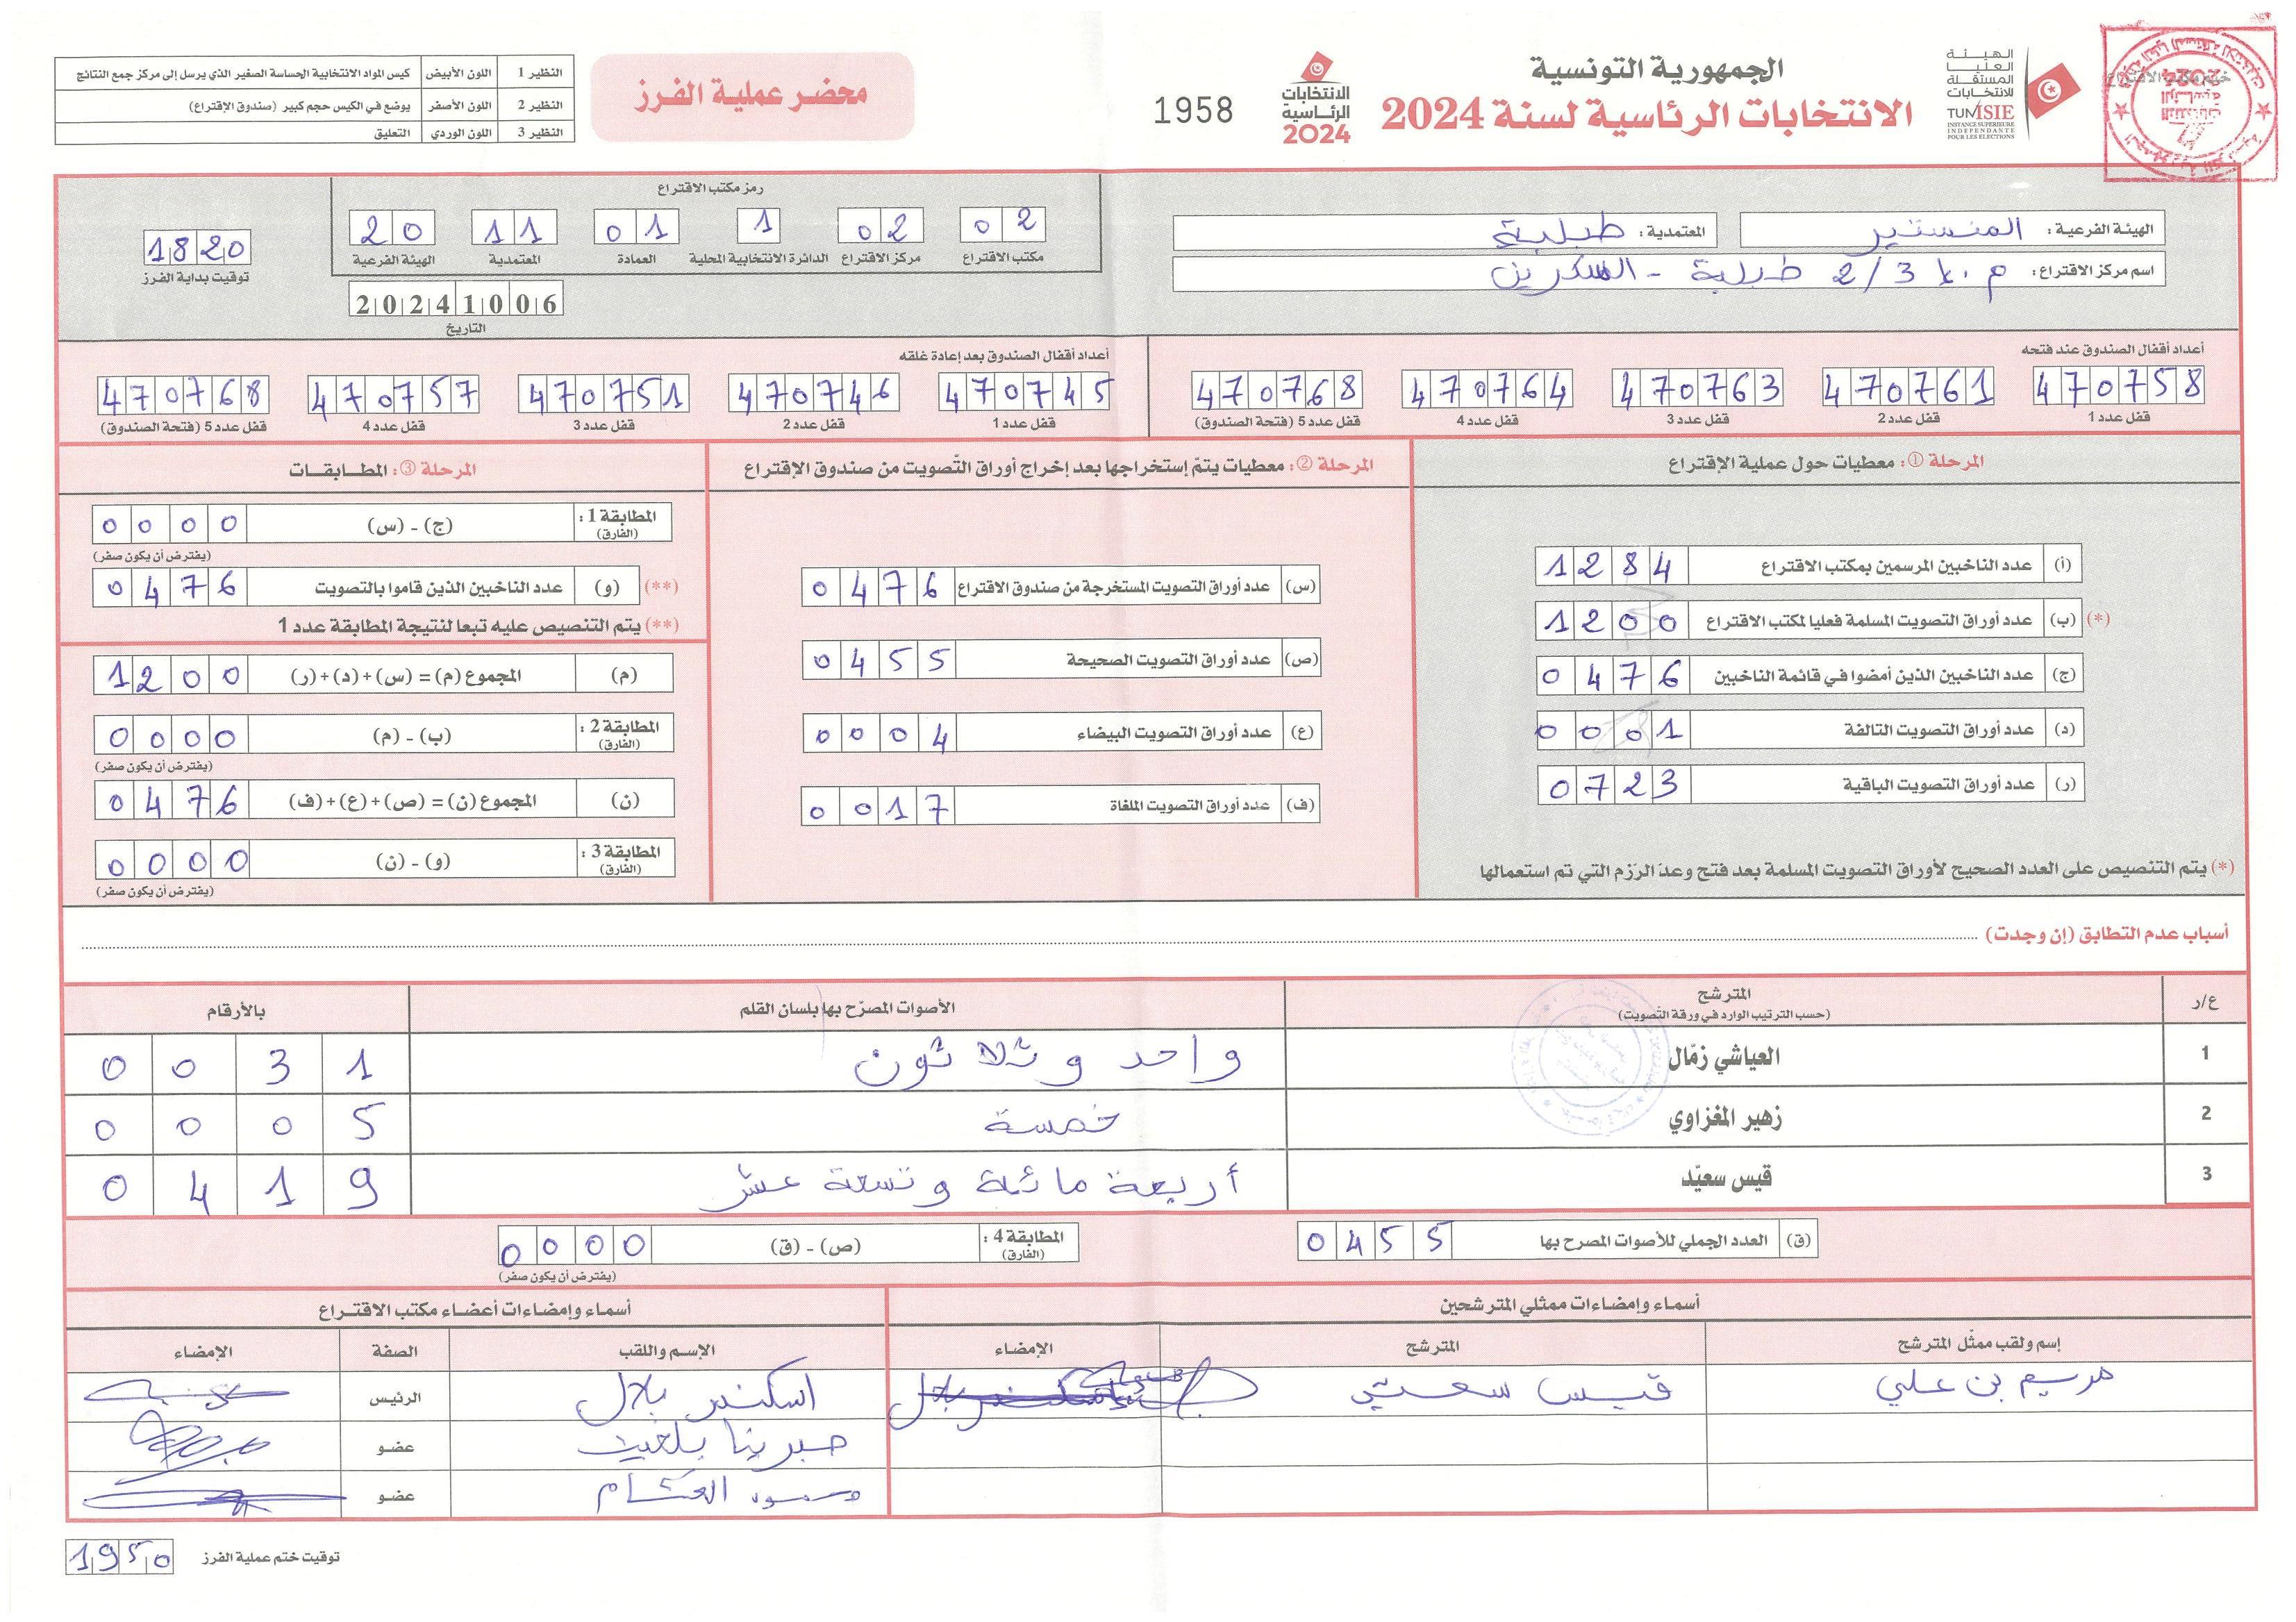 الجمهورية التونسية
الانتخابات الرئاسية لسنة 2024
الهيئة العليا المستقلة للانتخابات
TUNISIE
INSTANCE SUPERIEURE INDEPENDANTE POUR LES ELECTIONS
ختم مكتب الاقتراع
الانتخابات الرئاسية 2024
1958
محضر عملية الفرز
النظير 1 اللون الأبيض كيس المواد الانتخابية الحساسة الصغير الذي يرسل إلى مركز جمع النتائج
النظير 2 اللون الأصفر يوضع في الكيس حجم كبير (صندوق الإقتراع)
النظير 3 اللون الوردي التعليق
الهيئة الفرعية: المنستير المعتمدية: طبلبة
اسم مركز الاقتراع: 2/3 طبلبة -
رمز مكتب الاقتراع
02 مكتب الاقتراع
02 مركز الاقتراع
1 الدائرة الانتخابية المحلية
01 العمادة
11 المعتمدية
20 الهيئة الفرعية
20241006
التاريخ
1820
توقيت بداية الفرز
أعداد أقفال الصندوق عند فتحه
470758 470761 470763 470764 470768
قفل عدد 1 قفل عدد 2 قفل عدد 3 قفل عدد 4 قفل عدد 5 (فتحة الصندوق)
أعداد أقفال الصندوق بعد إعادة غلقه
470745 470746 470751 470757 470768
قفل عدد 1 قفل عدد 2 قفل عدد 3 قفل عدد 4 قفل عدد 5 (فتحة الصندوق)
المرحلة ①: معطيات حول عملية الإقتراع
(أ) عدد الناخبين المرسمين بمكتب الاقتراع 1284
(*) (ب) عدد أوراق التصويت المسلمة فعليا لمكتب الاقتراع 1200
(ج) عدد الناخبين الذين أمضوا في قائمة الناخبين 0476
(د) عدد أوراق التصويت التالفة 0001
(ر) عدد أوراق التصويت الباقية 0723
(*) يتم التنصيص على العدد الصحيح لأوراق التصويت المسلمة بعد فتح وعدّ الرّزم التي تم استعمالها
المرحلة ②: معطيات يتمّ إستخراجها بعد إخراج أوراق التّصويت من صندوق الإقتراع
(س) عدد أوراق التصويت المستخرجة من صندوق الاقتراع 0476
(ص) عدد أوراق التصويت الصحيحة 0455
(ع) عدد أوراق التصويت البيضاء 0004
(ف) عدد أوراق التصويت الملغاة 0017
المرحلة ③: المطابقات
المطابقة 1: (الفارق) (ج) - (س) 0000
(يفترض أن يكون صفر)
(**) (و) عدد الناخبين الذين قاموا بالتصويت 0476
(**) يتم التنصيص عليه تبعا لنتيجة المطابقة عدد 1
(م) المجموع (م) = (س) + (د) + (ر) 1200
المطابقة 2: (الفارق) (ب) - (م) 0000
(يفترض أن يكون صفر)
(ن) المجموع (ن) = (ص) + (ع) + (ف) 0476
المطابقة 3: (الفارق) (و) - (ن) 0000
(يفترض أن يكون صفر)
أسباب عدم التطابق (إن وجدت)
ع/ر المترشح (حسب الترتيب الوارد في ورقة التصويت) الأصوات المصرّح بها بلسان القلم بالأرقام
1 العياشي زمّال واحد وثلاثون 0031
2 زهير المغزاوي خمسة 0005
3 قيس سعيّد أربعة مائة وتسعة عشر 0419
(ق) العدد الجملي للأصوات المصرح بها 0455
المطابقة 4: (الفارق) (ص) - (ق) 0000
(يفترض أن يكون صفر)
أسماء وإمضاءات ممثلي المترشحين
إسم ولقب ممثّل المترشح المترشح الإمضاء
مريم بن علي قيس سعيد
أسماء وإمضاءات أعضاء مكتب الاقتراع
الإسم واللقب الصفة الإمضاء
اسكندر بلال الرئيس
صبرينا بلغيث عضو
عضو
توقيت ختم عملية الفرز 1950